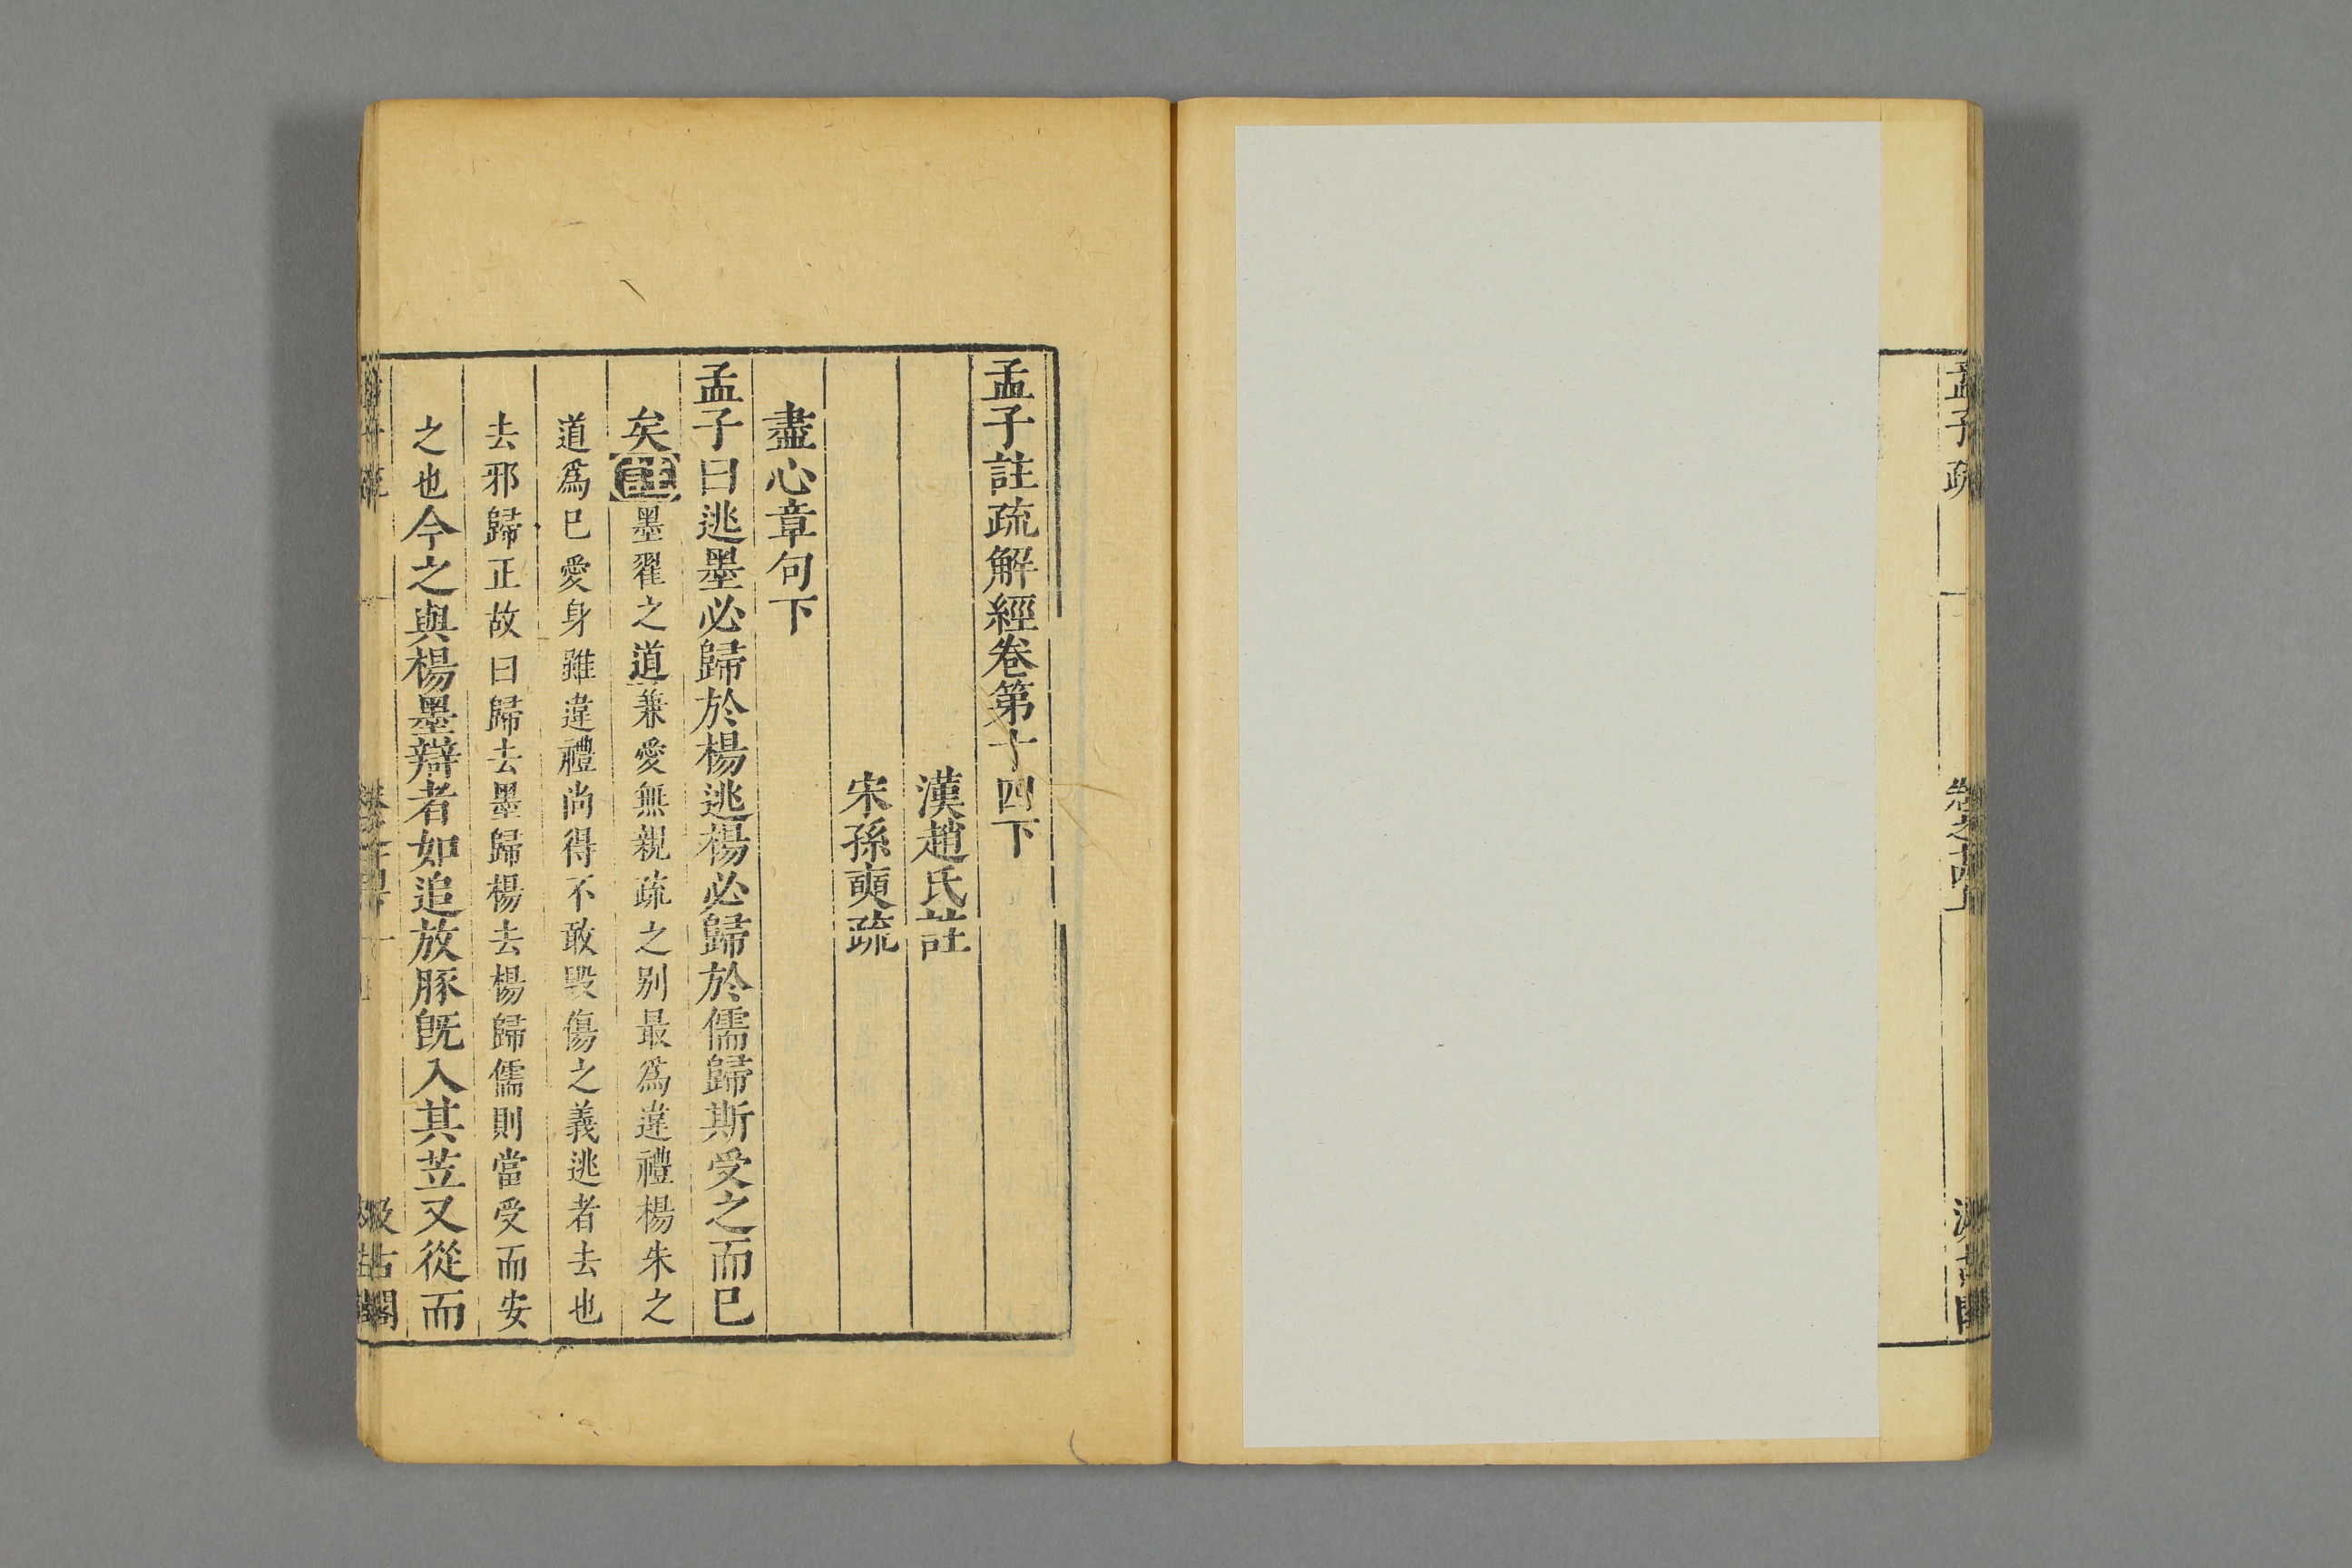 孟子疏
孟子註疏解經卷第十四下
漢趙氏註
宋孫奭疏
盡心章句下
孟子曰逃墨必歸於楊逃楊必歸於儒歸斯受之而已
矣註墨翟之道兼愛無親疏之别最爲違禮楊朱之
道爲已愛身雖違禮尚得不敢毀傷之義逃者去也
去邪歸正故曰歸去墨歸楊去楊歸儒則當受而安
之也今之與楊墨辯者如追放豚旣入其苙又從而
汲古閣